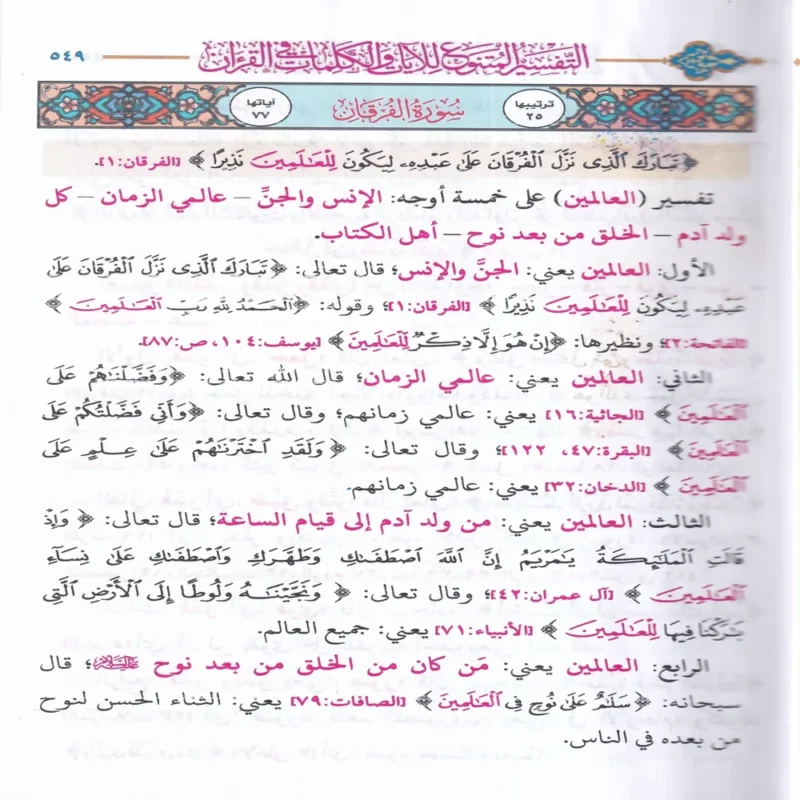 التفسير المتنوع للآيات والكلمات في القرآن ٥٤٩
ترتيبها ٢٥ سورة الفرقان آياتها ٧٧
﴿ تَبَارَكَ الَّذِي نَزَّلَ الْفُرْقَانَ عَلَى عَبْدِهِ لِيَكُونَ لِلْعَالَمِينَ نَذِيرًا ﴾ [الفرقان:١].
تفسير (العالمين) على خمسة أوجه: الإنس والجنِّ – عالمي الزمان – كل
ولد آدم – الخلق من بعد نوح – أهل الكتاب.
الأول: العالمين يعني: الجنَّ والإنس؛ قال تعالى: ﴿ تَبَارَكَ الَّذِي نَزَّلَ الْفُرْقَانَ عَلَى
عَبْدِهِ لِيَكُونَ لِلْعَالَمِينَ نَذِيرًا ﴾ [الفرقان:١]؛ وقوله: ﴿الْحَمْدُ لِلَّهِ رَبِّ الْعَالَمِينَ ﴾
[الفاتحة:٢]؛ ونظيرها: ﴿إِنْ هُوَ إِلَّا ذِكْرٌ لِلْعَالَمِينَ﴾ [يوسف:١٠٤، ص:٨٧].
الثاني: العالمين يعني: عالمي الزمان؛ قال الله تعالى: ﴿وَفَضَّلْنَاهُمْ عَلَى
الْعَالَمِينَ ﴾ [الجاثية:١٦] يعني: عالمي زمانهم؛ وقال تعالى: ﴿وَأَنِّي فَضَّلْتُكُمْ عَلَى
الْعَالَمِينَ ﴾ [البقرة:٤٧، ١٢٢]؛ وقال تعالى: ﴿وَلَقَدِ اخْتَرْنَاهُمْ عَلَى عِلْمٍ عَلَى
الْعَالَمِينَ ﴾ [الدخان:٣٢] يعني: عالمي زمانهم.
الثالث: العالمين يعني: من ولد آدم إلى قيام الساعة؛ قال تعالى: ﴿ وَإِذْ
قَالَتِ الْمَلَائِكَةُ يَامَرْيَمُ إِنَّ اللَّهَ اصْطَفَاكِ وَطَهَّرَكِ وَاصْطَفَاكِ عَلَى نِسَاءِ
الْعَالَمِينَ ﴾ [آل عمران:٤٢]؛ وقال تعالى: ﴿ وَنَجَّيْنَاهُ وَلُوطًا إِلَى الْأَرْضِ الَّتِي
بَارَكْنَا فِيهَا لِلْعَالَمِينَ ﴾ [الأنبياء:٧١] يعني: جميع العالم.
الرابع: العالمين يعني: مَن كان من الخلق من بعد نوح عليه السلام؛ قال
سبحانه: ﴿ سَلَامٌ عَلَى نُوحٍ فِي الْعَالَمِينَ ﴾ [الصافات:٧٩] يعني: الثناء الحسن لنوح
من بعده في الناس.